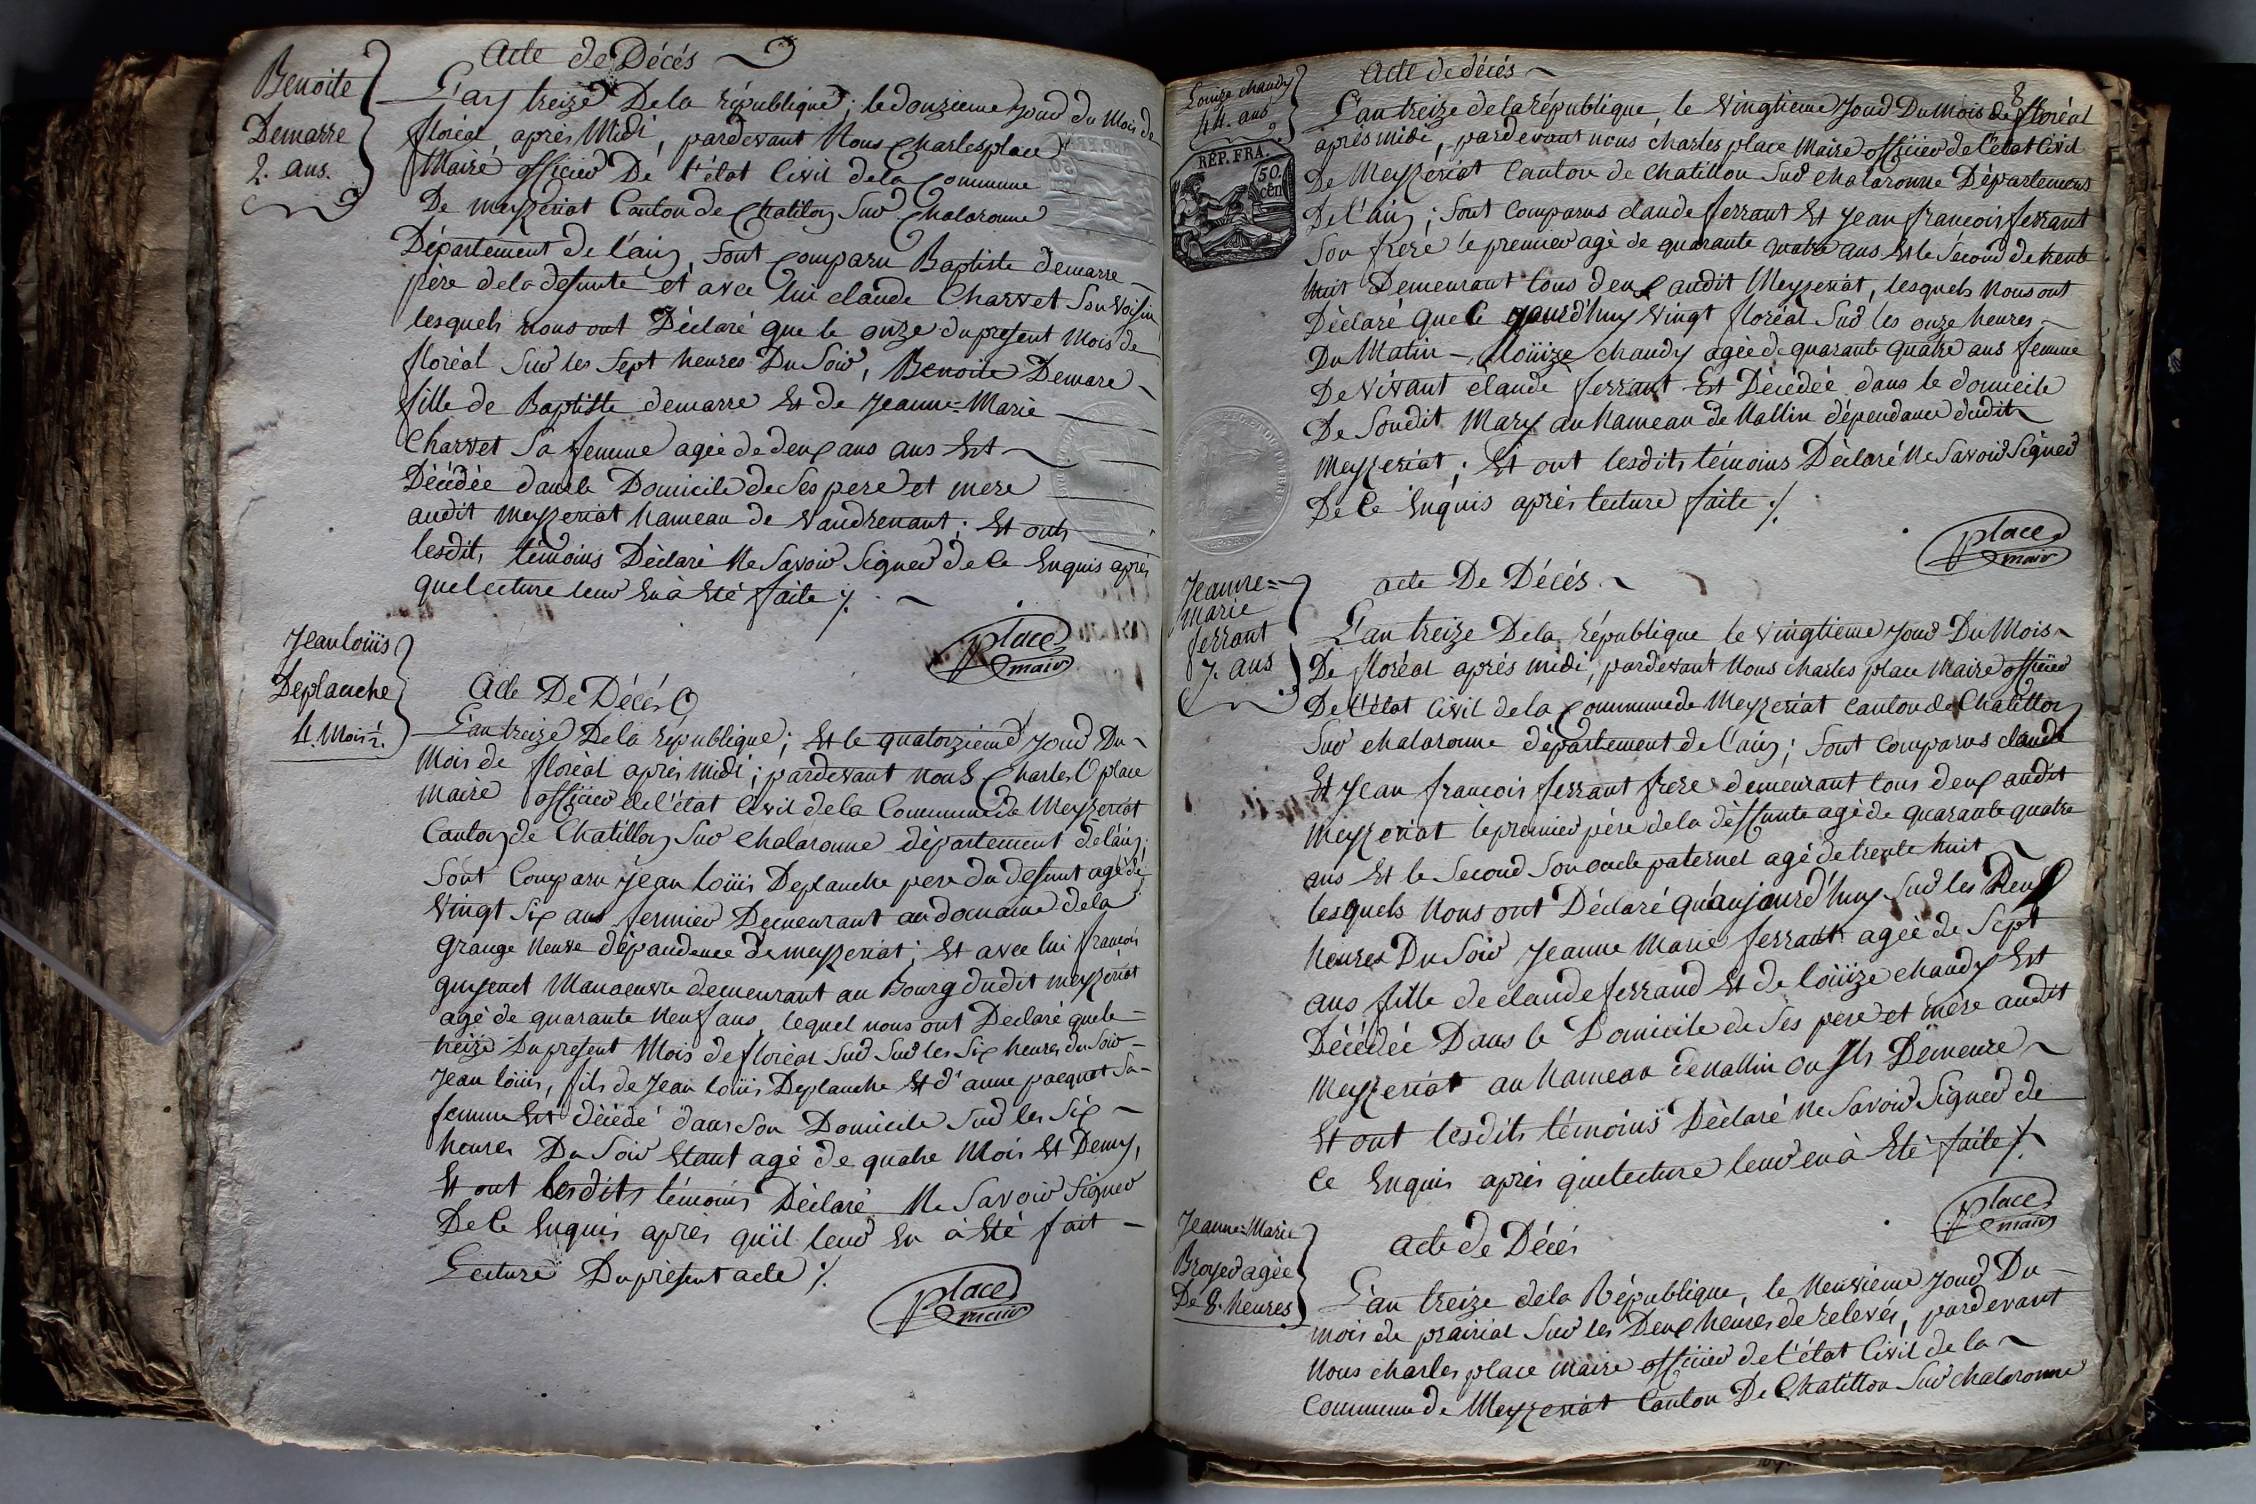 Benoite
Demarre
2. ans.
Acte de Décés
L'an treize De la république; le douzieme jour du Mois de
floréal après Midi, pardevant Nous Charles place
Maire officier De l'état Civil de la Commune
De meyzeriat Canton de Chatillon Sur Chalaronne
Département de l'ain, Sont Comparu Baptiste demarre
père de la defunte et avec lui claude Charvet Son Voisin
lesquels nous ont Déclaré que le onze du present Mois de
floréal Sur les Sept heures Du Soir, Benoite Demare
fille de Baptiste demarre Et de Jeanne=Marie
Charvet Sa femme agée de deux ans ans Est
Décédée dans le Domicile de Ses pere et mere
audit meyzeriat hameau de Vaudrenant; Et onts
lesdits témoins Déclaré Ne Savoir Signer de Ce Enquis après
que lecture leur En à Eté faite ./.
place
maire
Jean loüis
Deplanche
4. Mois ½.
Acte De Décés
L'an treize De la république; Et le quatorzieme jour Du
Mois de floréal après Midi; pardevant nous Charles place
Maire officier de l'état Civil de la Commune de Meyzeriat
Canton de Chatillon Sur Chalaronne département de l'ain;
Sont Comparu Jean loüis Deplanche pere du defunt agé de
Vingt Six ans fermier Demeurant au domaine de la
grange Neuve dépandence de meyzeriat; Et avec lui françois
guyenet Manoeuvre demeurant au Bourg dudit meyzeriat
agé de quarante Neuf ans, lequel nous ont Declaré que le
treize Du present Mois de floréal Sur Sur les Six heures du Soir
Jean loüis, fils de Jean loüis Deplanche Et d'anne pacquet Sa
femme Est décédé dans Son Domicile Sur les Six
heures Du Soir Etant agé de quatre Mois Et Demy,
Et ont lesdits témoins Déclaré Ne Savoir Signer
De Ce Enquis après qu'il leur En à Eté fait
Lecture Du present acte ./.
place
maire
8
Louize chaudy
44. ans
REP. FRA.
50
cen
Acte de décés
L'an treize de la république, le vingtieme Jour Du Mois de floréal
après midi, pardevant nous charles place Maire officier de l'état Civil
De Meyzeriat Canton de Chatillon Sur Chalaronne Département
De l'ain; Sont Comparus claude ferrant Et Jean françois ferrant
Son frere le premier agé de quarante quatre ans Et le Second de trente
huit Demeurant tous deux audit Meyzeriat, lesquels Nous ont
Déclaré que Ce jourd'huy Vingt floréal Sur les onze heures
Du Matin, Loüize chaudy agée de quarante quatre ans femme
De Vivant claude ferrant Est Décédée dans le domicile
De Sondit Mary au hameau de Nallin dépendance dudit
Meyzeriat; Et ont lesdits témoins Déclaré Ne Savoir Signer
De Ce Enquis après lecture faite ./.
place
maire
Jeanne=
marie
ferrant
7. ans
acte De Décés.
L'an treize De la république le vingtieme jour Du Mois
De floréal après midi, pardevant Nous charles place Maire officier
De l'état Civil de la Commune de Meyzeriat canton de Chatillon
Sur chalaronne département de l'ain; Sont comparus claude
Et Jean françois ferrant frere demeurant tous deux audit
Meyzeriat le premier père de la deffunte agé de quarante quatre
ans Et le Second Son oncle paternel agé de trente huit
lesquels Nous ont Déclaré qu'aujourd'huy Sur les Deux
heures Du Soir Jeanne Marie ferrant agée de Sept
ans fille de claude ferrand Et de loüize chaudy Est
Décédée Dans le Domicile de Ses pere et mère audit
Meyzeriat au hameau de Nallin ou Ils Demeure
Et ont lesdits témoins Déclaré Ne Savoir Signer de
Ce Enquis après que lecture leur en à Eté faite ./.
place
maire
Jeanne=Marie
Broyer agée
De 8. heures
acte de Décés
L'an treize de la République, le Neuvieme jour Du
mois de prairial Sur les Deux heures de relevés, pardevant
Nous charles place maire officier de l'état Civil de la
Commune de Meyzeriat Canton De Chatillon Sur chalaronne